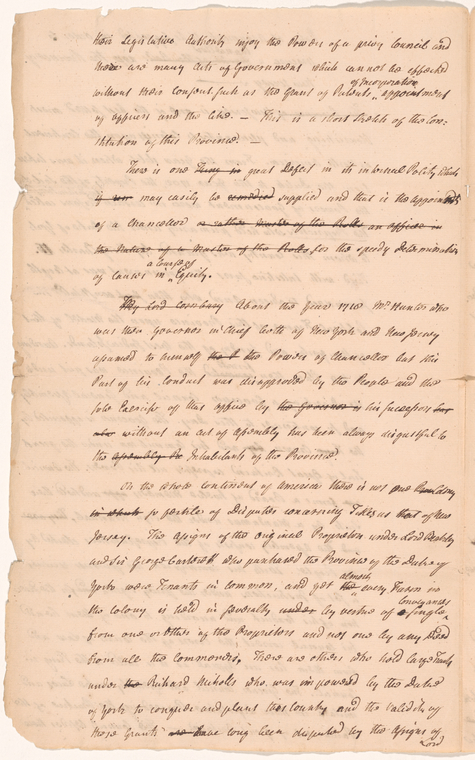 their Legislative Authority enjoy the Powers of a privy Council and
there are many Acts of Government which cannot be effected
of Incorporation
without their Consent such as the Grant of Patents, appointment
of officers and the like. — This is a short Sketch of the Con-
stitution of this Province. —
There is one Thing in great Defect in its internal Polity which
may easily be remedied supplied and that is the appointmt
of a Chancellor or rather Master of the Rolls an officer in
the Nature of a Master of the Rolls for the speedy determination
a Court of
of Causes in Equity.
My Lord Cornbury About the Year 1710 Mr. Hunter who
was then Governor in Chief both of New York and New Jersey
assumed to himself the Powers of Chancellor but this
Part of his Conduct was disapproved by the People and the
sole Exercise of that office by the Governor is his Successors
without an act of Assembly has been always disgustful to
the Assembly Inhabitants of the Province.
On the whole continent of America there is not one
so fertile of Disputes concerning Titles as that of New
Jersey. The assigns of the original Proprietors under Lord Berkley
and Sir George Carterett who purchased the Province of the Duke of
York were Tenants in common, and yet
almost
every Farm in
Conveyances
the Colony is held in severalty under by vertue of a single
from one or other of the Proprietors and not one by any Deed
from all the commoners. There are others who hold large Tracts
under the Richard Nicholls who was impowered by the Duke
of York to conquer and plant this Country and the Validity of
those Grants have long been disputed by the Assigns of
Lord